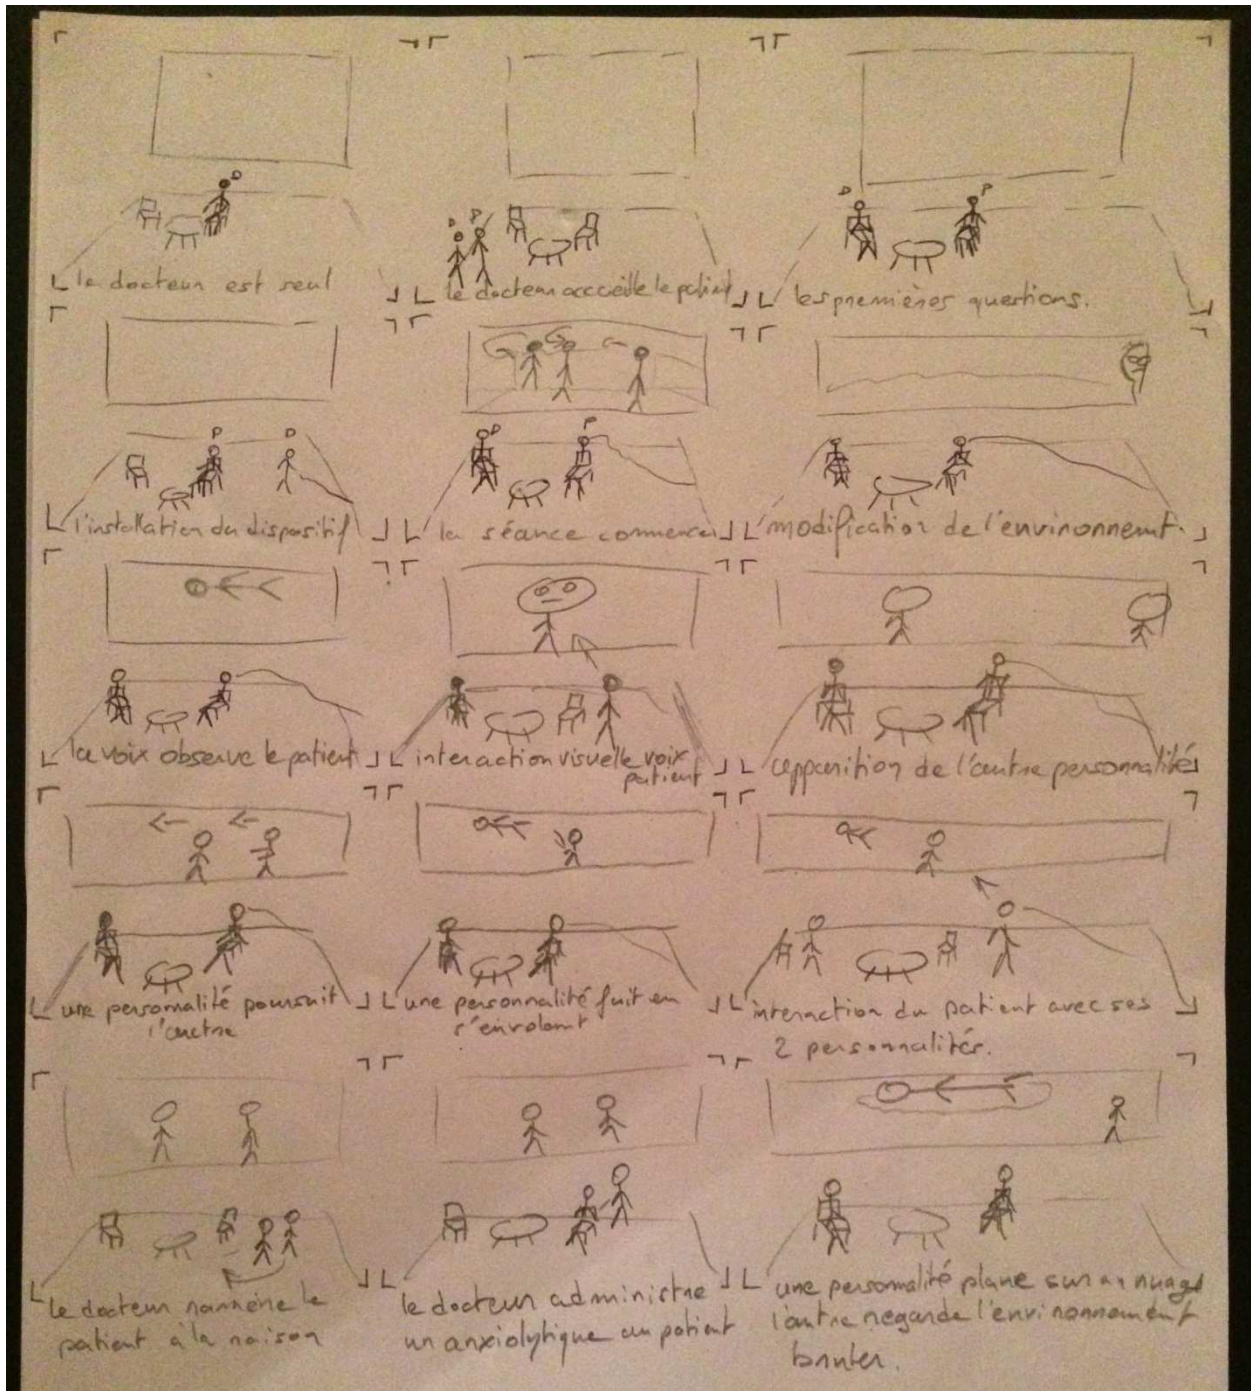 D
le docteur est seul
D P
le docteur acceuille le patient
D P
les premières questions.
P D
l'installation du dispositif
D P
la séance commence
modification de l'environnemt.
la voix observe le patient
interaction visuelle voix
patient
apparition de l'autre personnalités
une personnalité poursuit
l'autre
une personnalité fuit en
s'envolant
interaction du patient avec ses
2 personnalités.
le docteur ramène le
patient à la raison
le docteur administre
un anxiolytique au patient
une personnalité plane sur un nuage
l'autre regarde l'environnement
bruler.